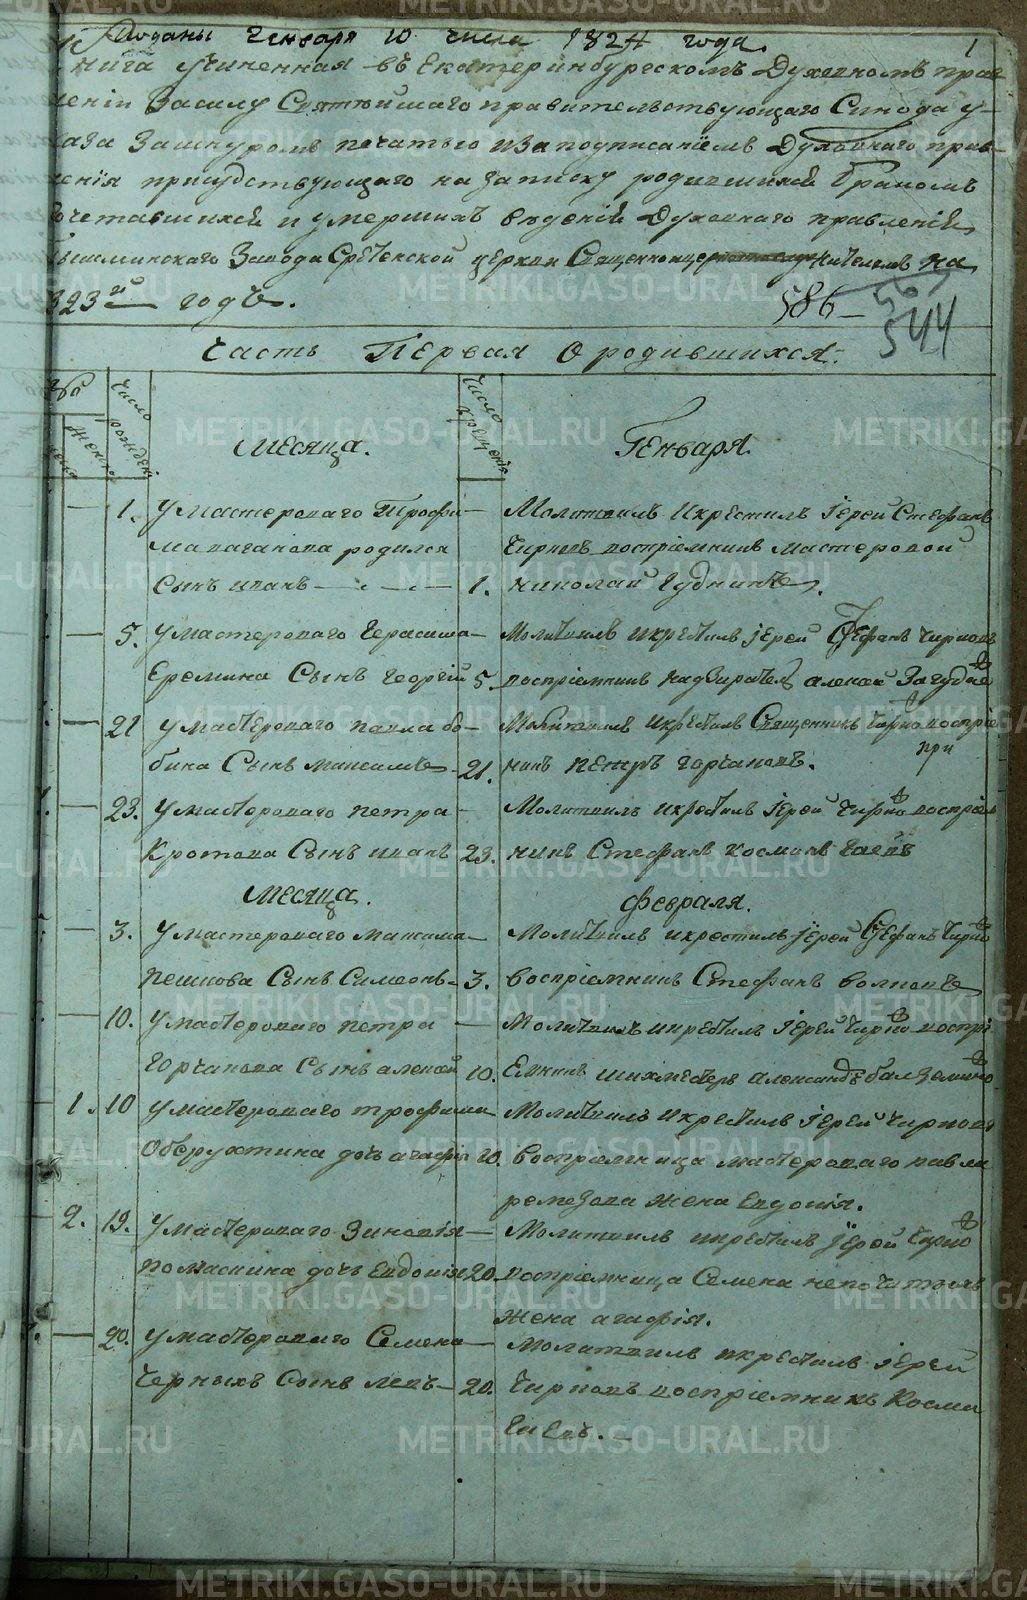 Поданы Генваря 10 числа 1824 года.
1
нига учиненная въ Екатеринбургскомъ Духовномъ прав
ленiи Засилу Святѣйшаго правительствующаго Синода у-
каза Зашнуромъ печатью изаподписанiемъ Духовнаго прав-
ленiя присудствующаго назаписку родившихся бракомъ
сочетавшихся и умершихъ вѣденiй Духовнаго правленiя
Пышминскаго Завода Срѣтенской церкви Священноцерковнослужителемъ на
1823й годъ.
586
544
Часть Первая О родившихся.
Число рожденiя
Число крещенiя
Месяца.
Генваря.
1. У мастероваго Трофи-
ма ваганова родился
Сынъ иванъ
1. Молитвилъ Икрестилъ Iерей Стефанъ
Чирковъ воспрiемникъ мастеровои
николай Гудинъ.
5. У мастероваго Герасима
Еремина Сынъ Георгiй
5. Молитвилъ икрестилъ iерей Стефанъ Чирковъ
воспрiемникъ надзиратель алексей
21 У мастероваго павла бо-
бина Сынъ максимъ
21. Молитвилъ икрестилъ Священникъ Чирковъ воспрiем
никъ петръ горчаковъ.
при
23. У мастероваго петра
Кротова Сынъ иванъ
23. Молитвилъ икрестилъ iерей Чирковъ воспрiем
никъ Стефанъ косминъ Гаевъ
Месяца.
Февраля.
3. У мастероваго максима
пешкова Сынъ Симеонъ
3. Молитвилъ икрестилъ iерей Стефанъ Чирковъ
воспрiемникъ Стефанъ волковъ
10. У мастероваго петра
Горчакова Сынъ алексей
10. Молитвилъ икрестилъ iерей Чирковъ воспрi
Емникъ шихмейстеръ александръ
1. 10 У мастероваго трофима
Оберухтина дочь агафiя
10. Молитвилъ икрестилъ Iерей Чирковъ
Воспрiемница мастероваго павла
ремезова жена Евдокiя.
2. 19. У мастероваго Зиновiя
помаскина дочь Евдокия
20. Молитвилъ икрестилъ Iерей Чирковъ
воспрiемница Семена
жена агафiя.
20. У мастероваго Семена
Черныхъ Сынъ левъ
20. Молитвилъ икрестилъ iерей
Чирковъ воспрiемникъ Косма
Гаевъ.
METRIKI.GASO-URAL.RU